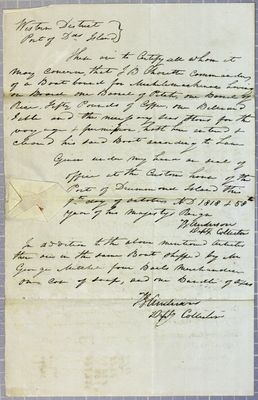 Western District
Port of Drd Island
These are to Certify all whom it
may Concern that J B Commander
of a Boat bound for Michilimackinac having
on Board one Barrel of one Barrel of
Rice Fifty Pounds of one
Table and the necessary Sea Stores for the
voyage & permission hath here entered &
cleared his said Boat according to Law
Given under my hand an seal of
office at the Custom house of the
Port of Drummond Island this
day of october AD 1818 & 58th
year of his Majestys Reign
Anderson
Collector
In addition to the above mentioned Articles
their is in the same Boat Shipped by Mr
George Mitchel four Merchandise
one of soap, and one Bundle of
Anderson
Collector